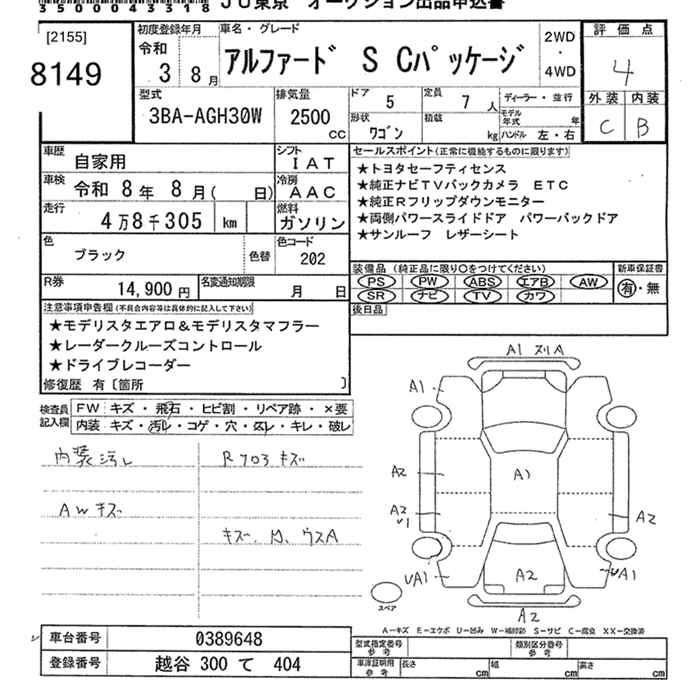 35000433318 JU東京 オークション出品申込書
[2155]
8149
初度登録年月
令和
3 8月
車名・グレード
アルファード S Cパッケージ
2WD
・
4WD
評価点
4
外装 内装
C B
型式
3BA-AGH30W
排気量
2500
CC
ドア 5
定員 7 人
ディーラー・並行
形状 ワゴン
積載 kg
モデル年式 年
ハンドル 左・右
車歴 自家用
シフト IAT
車検 令和 8年 8月( 日)
冷房 AAC
走行 4万8千305 km
燃料 ガソリン
色 ブラック 色替
色コード 202
R券 14,900円
名変通知期限 月 日
セールスポイント(正常に機能するものに限ります)
★トヨタセーフティセンス
★純正ナビTVバックカメラ ETC
★純正Rフリップダウンモニター
★両側パワースライドドア パワーバックドア
★サンルーフ レザーシート
装備品(純正品に限り○をつけてください)
新車保証書
PS PW ABS エアB AW
有・無
SR ナビ TV カワ
後日品
注意事項申告欄(不具合内容等は具体的に記入して下さい)
★モデリスタエアロ&モデリスタマフラー
★レーダークルーズコントロール
★ドライブレコーダー
修復歴 有〔箇所 〕
検査員記入欄
FW キズ・飛石・ヒビ割・リペア跡・×要
内装 キズ・汚レ・コゲ・穴・スレ・キレ・破レ
内装汚レ
Rフロアキズ
AWキズ
キズ、凹、ウスA
A1 スリA
A1
A2
A1
A2
V1
A2
UA1
A2
UA1
A2
スペア
A-キズ E-エクボ U-凹み W-補修跡 S-サビ C-腐食 XX-交換済
車台番号 0389648
登録番号 越谷 300 て 404
型式指定番号 参考
類別区分番号 参考
車庫証明用 参考
長さ cm 幅 cm 高さ cm